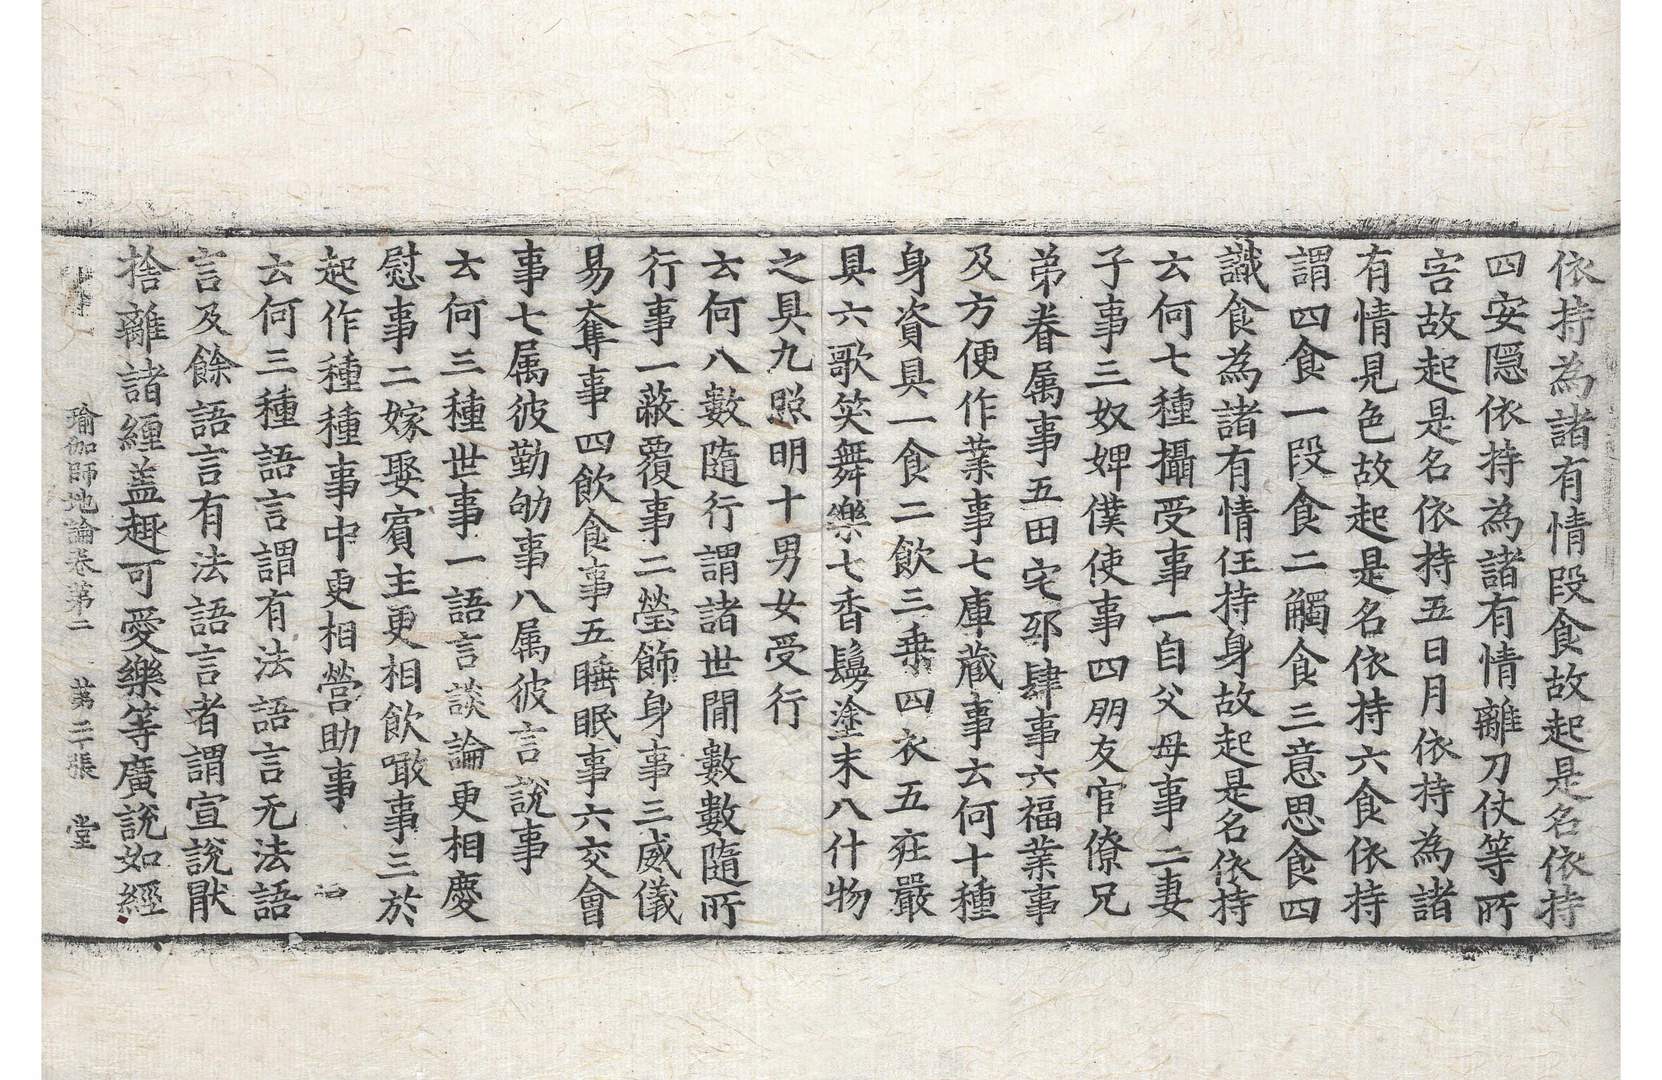 依持為諸有情段食故起是名依持
四安隱依持為諸有情離刀仗等所
害故起是名依持五日月依持為諸
有情見色故起是名依持六食依持
謂四食一段食二觸食三意思食四
識食為諸有情任持身故起是名依持
云何七種攝受事一自父母事二妻
子事三奴婢僕使事四朋友官僚兄
弟眷属事五田宅邸肆事六福業事
及方便作業事七庫藏事云何十種
身資具一食二飲三乗四衣五莊嚴
具六歌笑舞樂七香鬘塗末八什物
之具九照明十男女受行
云何八數隨行謂諸世間數數隨所
行事一蔽覆事二瑩飾身事三威儀
易奪事四飲食事五睡眠事六交會
事七属彼勤劬事八属彼言說事
云何三種世事一語言談論更相慶
慰事二嫁娶賓主更相飲噉事三於
起作種種事中更相營助事
云何三種語言謂有法語言无法語
言及餘語言有法語言者謂宣說猒
捨離諸纒盖趣可愛樂等廣說如經
瑜伽師地論卷第二 第二十張 堂